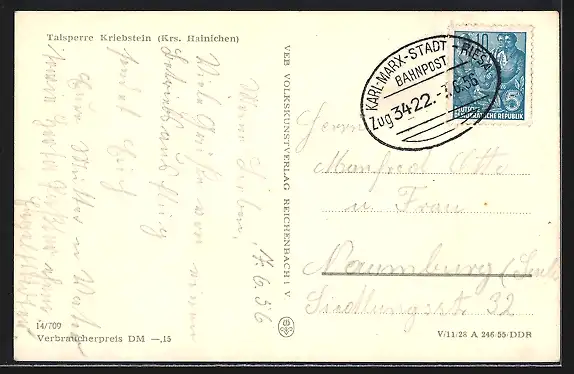 Talsperre Kriebstein (Krs. Hainichen)
17.6.56
Meine Lieben,
Viele Grüße von einem
Betriebsausflug
sendet Euch
Eure Mutter u.
14/709
Verbraucherpreis DM —,15
VEB VOLKSKUNSTVERLAG REICHENBACH i. V.
KARL-MARX-STADT - RIESA
BAHNPOST
Zug 3422 .-7.6.56
10
DEUTSCHE
DEMOKRATISCHE REPUBLIK
Herrn
Manfred Otto
u. Frau
Naumburg (Saale
Siedlungsstr. 32
V/11/28 A 246 55/DDR